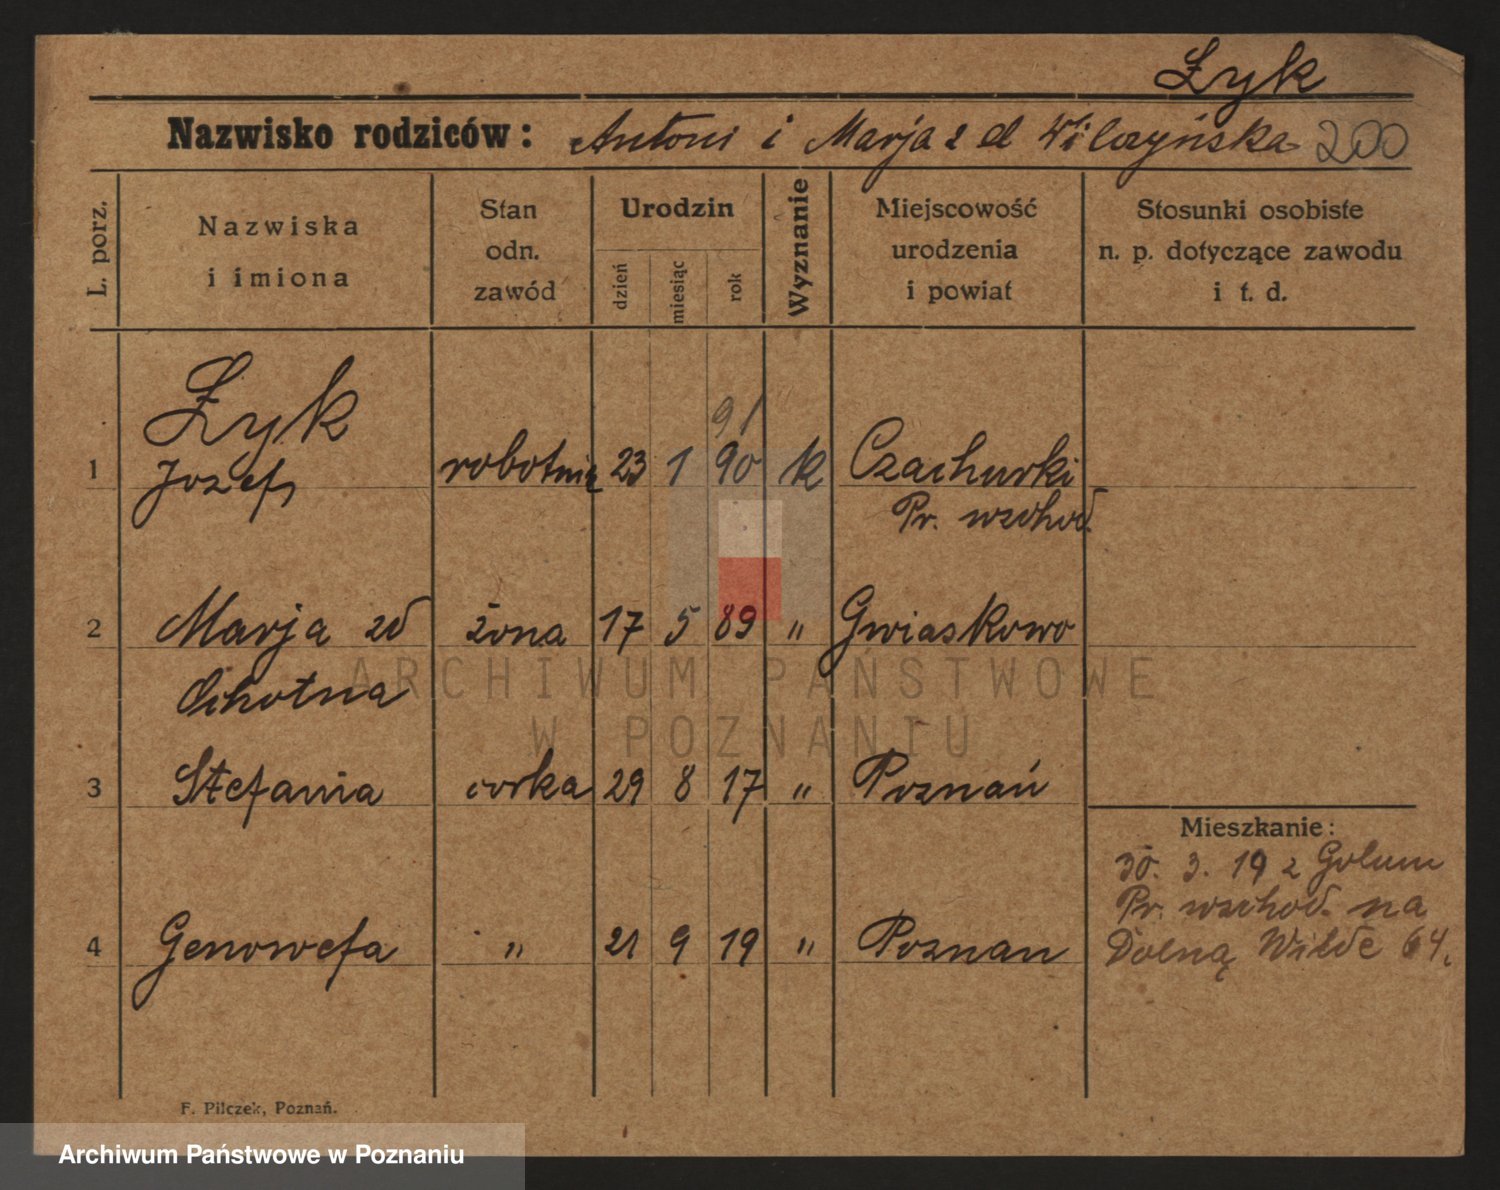 Żyk
Nazwisko rodziców: Antoni i Marja z d Wilczyńska 200
L. porz.
Nazwiska
i imiona
Stan
odn.
zawód
Urodzin
dzień
miesiąc
rok
Wyznanie
Miejscowość
urodzenia
i powiat
Stosunki osobiste
n. p. dotyczące zawodu
i t. d.
Żyk
91
1 Jozef robotnik 23 1 90 k Czachurki
Pr. wschod.
2 Marja zd żona 17 5 89 " Gwiaskowo
Cichotna
3 Stefania corka 29 8 17 " Poznań
Mieszkanie:
30. 3. 19 z Golum
Pr. wschod. na
4 Genowefa " 21 9 19 " Poznan
Dolną Wilde 64.
F. Pilczek, Poznań.
ARCHIWUM PAŃSTWOWE
W POZNANIU
Archiwum Państwowe w Poznaniu